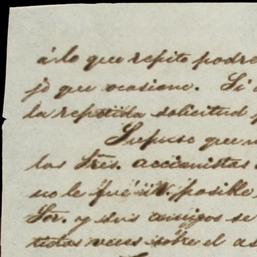 á lo que repito podre
jo que ocasione. Si
la repetida solicitud
Supuse que
los Sres. accionistas
no le fué posible
Sor. y sus amigos se
tidas veces sobre el as